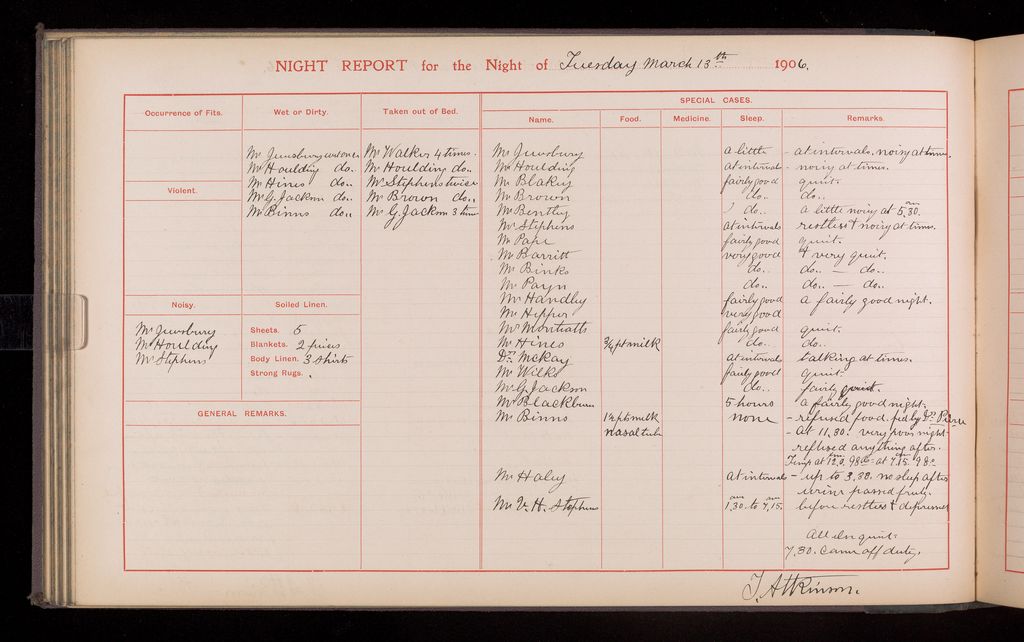 NIGHT REPORT for the Night of Tuesday March 13th 1906.
Occurrence of Fits.
Violent.
Noisy.
Mr Jewsbury
Mr Houlding
Mr Stephens
Wet or Dirty.
Mr Jewsbury wet once
Mr Houlding do..
Mr Hines do..
Mr G. Jackson do..
Mr Binns do..
Soiled Linen.
Sheets. 5
Blankets. 2 pieces
Body Linen. 3 shirts
Strong Rugs.
GENERAL REMARKS.
Taken out of Bed.
Mr Walker 4 times.
Mr Houlding do..
Mr Stephens twice
Mr Brown do..
Mr G. Jackson 3 times
SPECIAL CASES.
Name. Food. Medicine. Sleep. Remarks.
Mr Jewsbury a little - at intervals. noisy at times.
Mr Houlding at intervals - noisy at times.
Mr Blakey fairly good quiet.
Mr Brown do.. do..
Mr Bentley do.. a little noisy at 5.30. am
Mr Stephens at intervals restless & noisy at times.
Mr Pape fairly good quiet.
Mr Barritt very good & very quiet.
Mr Binks do.. do.. — do..
Mr Payn do.. do.. — do..
Mr Handley fairly good a fairly good night.
Mr Hipper very good
Mr fairly good quiet.
Mr Hines 3/4 pt milk do.. do..
Dr McKay at intervals talking at times.
Mr Wilks fairly good quiet.
Mr G. Jackson do.. fairly quiet.
Mr Blackburn 5 hours a fairly good night.
Mr Binns 1 1/2 pts milk none - refused food. fed by Dr Pierce
nasal tube - at 11.30. very poor night
refused anything after.
Temp at 12.0. 98.6 - at 4.15. am 98.0
Mr Haley at intervals - up to 3.30. no sleep after
urine passed freely.
Mr V. H. Stephens 1.30. am to 4.15. am before restless & depressed
All else quiet.
7.30. Came off duty.
J. Atkinson.